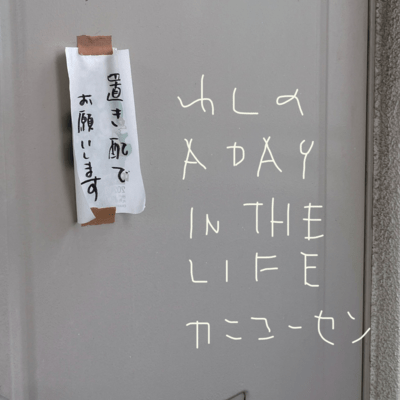 置き配で
お願いします
わしの
A DAY
IN THE
LIFE
カニコーセン